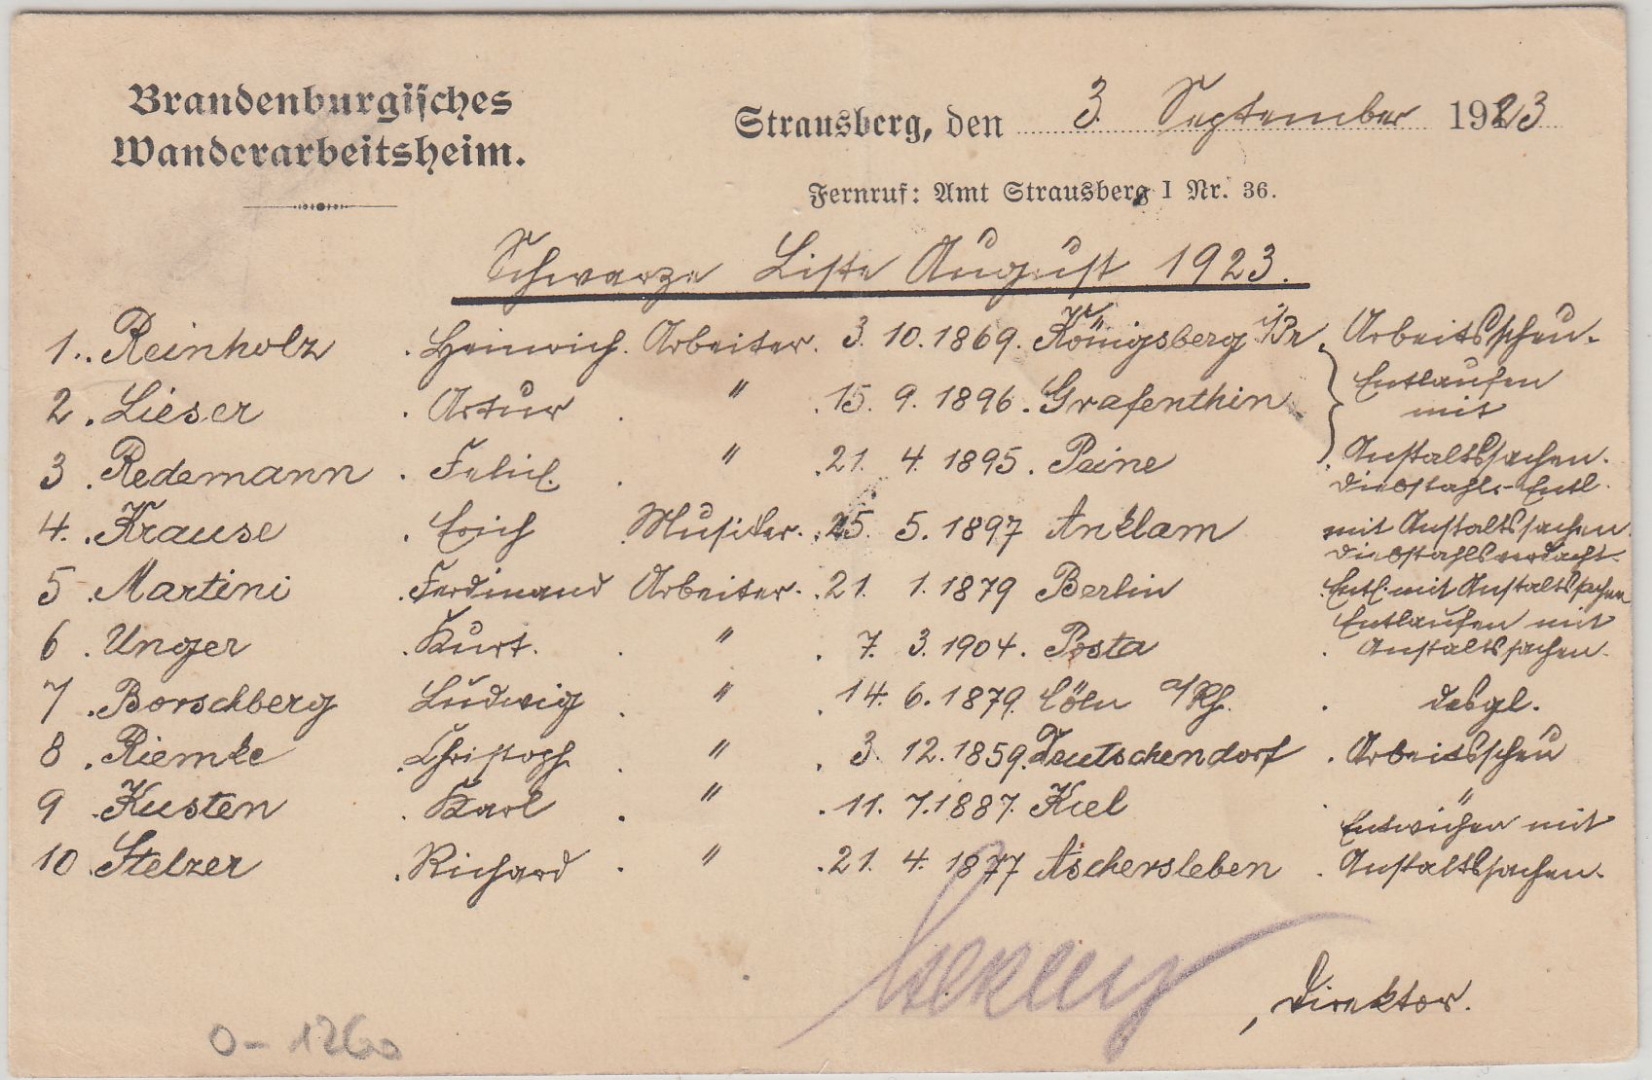 Brandenburgisches
Wanderarbeitsheim.
Strausberg, den 3. September 1923
Fernruf: Amt Strausberg I Nr. 36.
Schwarze Liste August 1923.
1. Reinholz . Heinrich. Arbeiter. 3. 10. 1869. Königsberg i/Pr. Arbeitsscheu.
2. Lieser . Artur . " . 15. 9. 1896. Grafenthin } Entlaufen
mit
3. Redemann . Felix. . " . 21. 4. 1895. Peine . Anstaltssachen.
Diebstahls-Entl.
4. Krause . Erich Musiker. 25. 5. 1897 Anklam mit Anstaltssachen.
Diebstahlsverdacht.
5 Martini . Ferdinand Arbeiter. 21. 1. 1879 Berlin . Entl. mit Anstaltssachen
Entlaufen mit
6. Unger . Kurt. . " . 7. 3. 1904. Posta . Anstaltssachen.
7. Borschberg Ludwig . " . 14. 6. 1879. Cöln a/Rh. . desgl.
8. Riemke . Christoph . " . 3. 12. 1859. Deutschendorf . Arbeitsscheu
9. Kusten . Karl . " . 11. 7. 1887. Kiel . "
Entwichen mit
10. Stelzer . Richard . " . 21. 4. 1877 Aschersleben . Anstaltssachen.
, Direktor.
0-1260